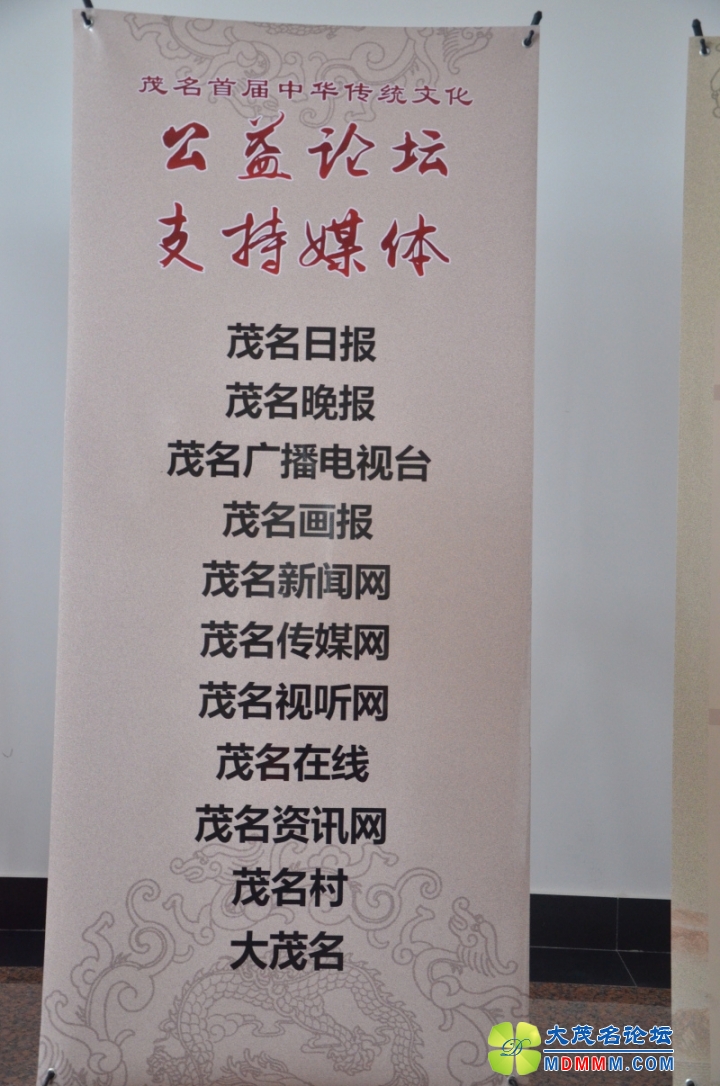 茂名首届中华传统文化
公益论坛
支持媒体
茂名日报
茂名晚报
茂名广播电视台
茂名画报
茂名新闻网
茂名传媒网
茂名视听网
茂名在线
茂名资讯网
茂名村
大茂名
大茂名论坛
MDMMM.COM